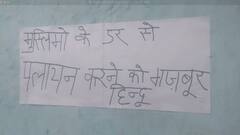 मुस्लिमो के डर से
पलायन करने को मजबूर
हिन्दू